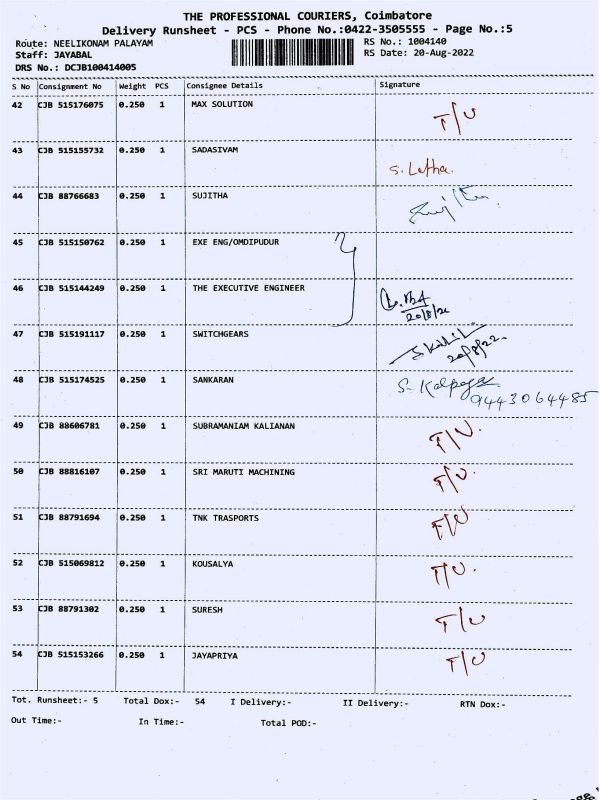 THE PROFESSIONAL COURIERS, Coimbatore
Delivery Runsheet - PCS - Phone No.:0422-3505555 - Page No.:5
Route: NEELIKONAM PALAYAM RS No.: 1004140
Staff: JAYABAL RS Date: 20-Aug-2022
DRS No.: DCJB100414005
S No Consignment No Weight PCS Consignee Details Signature
42 CJB 515176075 0.250 1 MAX SOLUTION T/U
43 CJB 515155732 0.250 1 SADASIVAM S. Letha.
44 CJB 88766683 0.250 1 SUJITHA
45 CJB 515150762 0.250 1 EXE ENG/OMDIPUDUR
46 CJB 515144249 0.250 1 THE EXECUTIVE ENGINEER
20/8/22
47 CJB 515191117 0.250 1 SWITCHGEARS
20/8/22.
48 CJB 515174525 0.250 1 SANKARAN S. Kalpaga
9443064485
49 CJB 88606781 0.250 1 SUBRAMANIAM KALIANAN T/U.
50 CJB 88816107 0.250 1 SRI MARUTI MACHINING T/U.
51 CJB 88791694 0.250 1 TNK TRASPORTS T/U
52 CJB 515069812 0.250 1 KOUSALYA T/U.
53 CJB 88791302 0.250 1 SURESH T/U
54 CJB 515153266 0.250 1 JAYAPRIYA T/U
Tot. Runsheet:- 5 Total Dox:- 54 I Delivery:- II Delivery:- RTN Dox:-
Out Time:- In Time:- Total POD:-